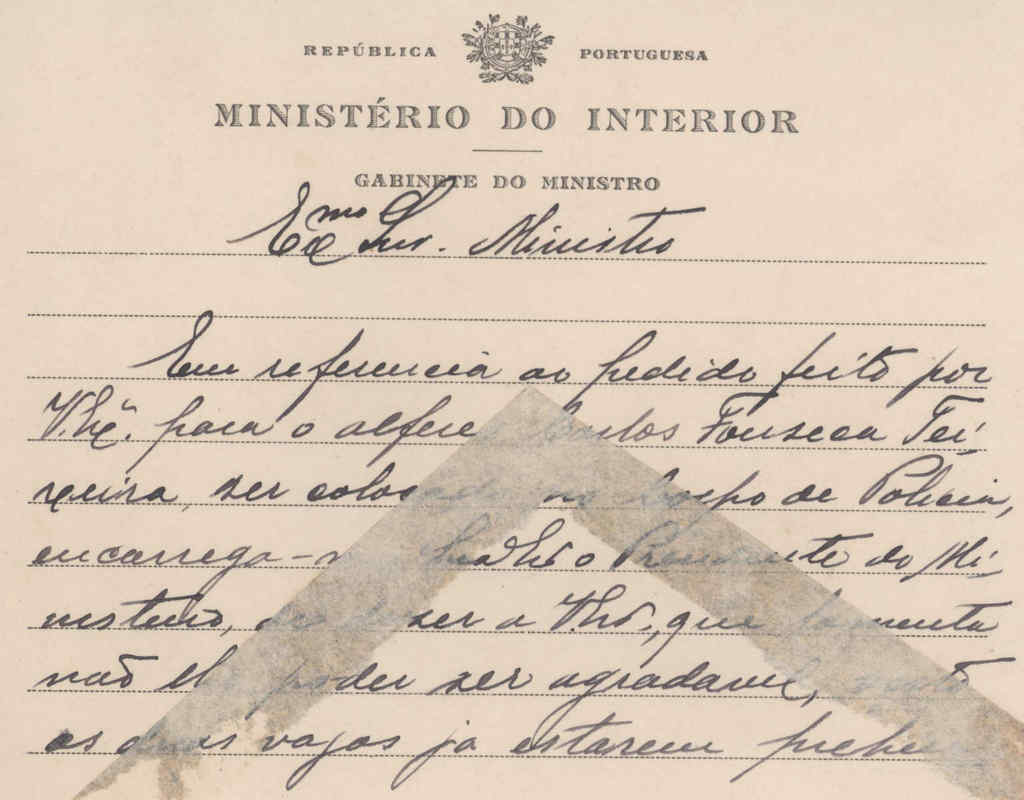 REPÚBLICA PORTUGUESA
MINISTÉRIO DO INTERIOR
GABINETE DO MINISTRO
Exmo Snr. Ministro
Em referencia ao pedido feito por
V. Exª. para o alferes Carlos Fonseca Tei-
xeira, ser colocado no Corpo de Policia,
encarrega-me Sua Exª o Presidente do Mi-
nisterio, de dizer a V. Exª., que lamenta
não lhe poder ser agradavel, visto
as duas vagas já estarem